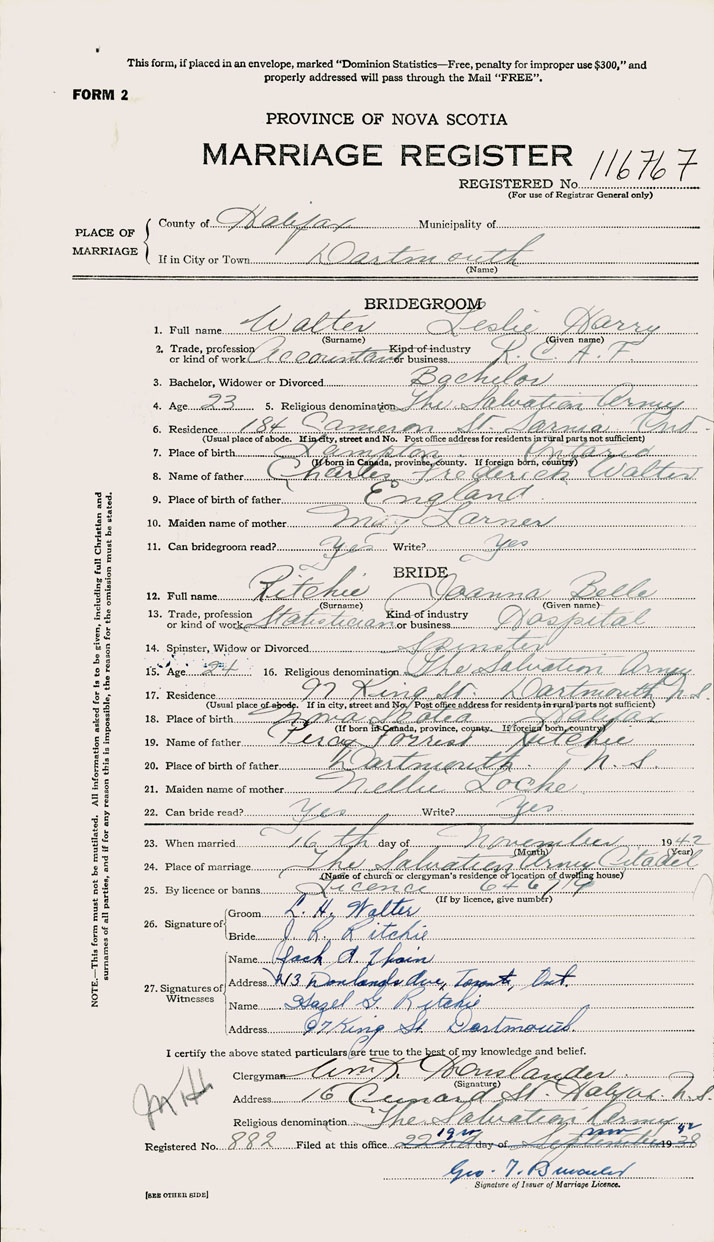 This form, if placed in an envelope, marked "Dominion Statistics—Free, penalty for improper use $300," and
properly addressed will pass through the Mail "FREE".
FORM 2
PROVINCE OF NOVA SCOTIA
MARRIAGE REGISTER
REGISTERED No. 116767
(For use of Registrar General only)
PLACE OF MARRIAGE
County of Halifax Municipality of
If in City or Town Dartmouth
(Name)
BRIDEGROOM
1. Full name Walter Leslie Harry
(Surname) (Given name)
2. Trade, profession or kind of work Accountant Kind of industry or business R.C.A.F.
3. Bachelor, Widower or Divorced Bachelor
4. Age 23 5. Religious denomination The Salvation Army
6. Residence 184 Cameron St. Sarnia Ont.
(Usual place of abode. If in city, street and No. Post office address for residents in rural parts not sufficient)
7. Place of birth Lampton Ontario
(If born in Canada, province, county. If foreign born, country)
8. Name of father Charles Frederick Walter
9. Place of birth of father England
10. Maiden name of mother Larner
11. Can bridegroom read? Yes Write? Yes
BRIDE
12. Full name Ritchie Joanna Belle
(Surname) (Given name)
13. Trade, profession or kind of work Statistician Kind of industry or business Hospital
14. Spinster, Widow or Divorced Spinster
15. Age 24 16. Religious denomination The Salvation Army
17. Residence 97 King St. Dartmouth N.S.
(Usual place of abode. If in city, street and No. Post office address for residents in rural parts not sufficient)
18. Place of birth Nova Scotia Halifax
(If born in Canada, province, county. If foreign born, country)
19. Name of father Percy Forrest Ritchie
20. Place of birth of father Dartmouth N.S.
21. Maiden name of mother Nellie Locke
22. Can bride read? Yes Write? Yes
23. When married 16th day of November 1942
(Month) (Year)
24. Place of marriage The Salvation Army Citadel
(Name of church or clergyman's residence or location of dwelling house)
25. By licence or banns Licence
(If by licence, give number)
26. Signature of
Groom L. H. Walter
Bride J. R. Ritchie
27. Signatures of Witnesses
Name Jack A. Thain
Address Donlands Ave, Toronto, Ont.
Name Hazel G. Ritchie
Address 97 King St. Dartmouth.
I certify the above stated particulars are true to the best of my knowledge and belief.
Clergyman
(Signature)
Address 16 Cunard St. Halifax N.S.
Religious denomination The Salvation Army
Registered No. 882 Filed at this office 22nd 19th day of September Nov 1938 42
Geo. T.
Signature of Issuer of Marriage Licence.
[SEE OTHER SIDE]
NOTE.—This form must not be mutilated. All information asked for is to be given, including full Christian and
surnames of all parties, and if for any reason this is impossible, the reason for the omission must be stated.